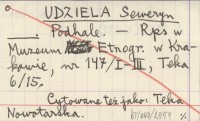 UDZIELA Seweryn
—. Podhale. — Rps w
Muzeum Etnogr. w Kra-
kowie, nr 147/I–III, Teka
6/15.
Cytowane też jako: Teka
Nowotarska.